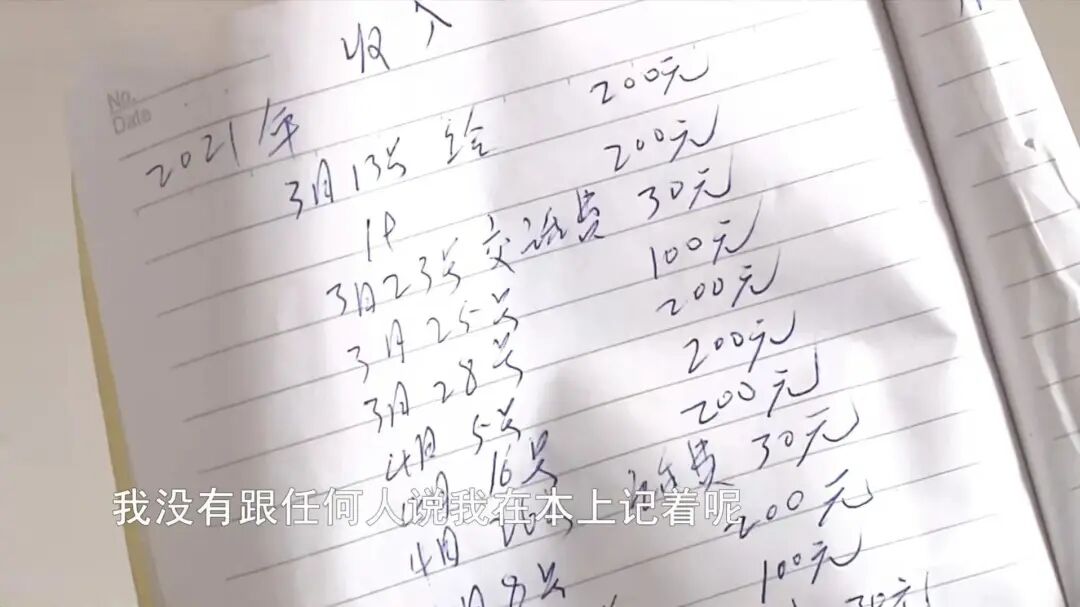 收入
No.
Date
2021年
3月13号 给 200元
200元
3月23号 交话费 30元
3月25号 100元
3月28号 200元
4月5号 200元
月16号 200元
4月 费 30元
月8号 200元
100元
我没有跟任何人说我在本上记着呢